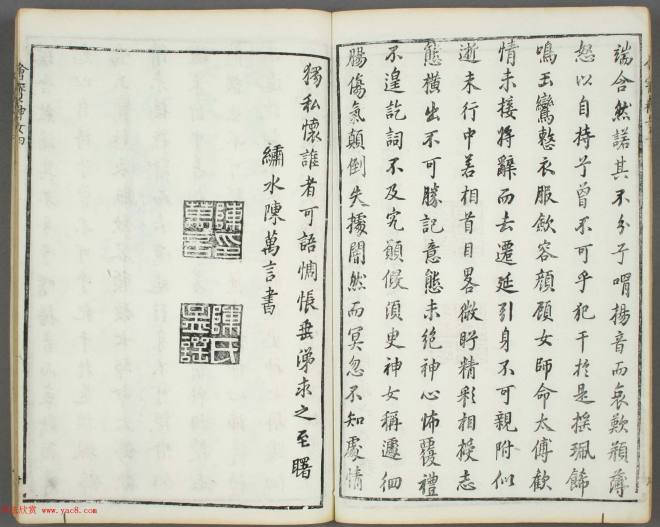 端合然諾其不分兮喟揚音而哀歎頩薄
怒以自持兮曾不可乎犯干於是揺珮飾
鳴玉鸞整衣服歛容顔顧女師命太傅歡
情未接將辭而去遷延引身不可親附似
逝未行中若相首目畧微盻精彩相授志
態横出不可勝記意態未絶神心怖覆禮
不遑訖詞不及究願假須臾神女稱遽徊
腸傷氣顛倒失據闇然而冥忽不知處情
獨私懐誰者可語惆悵垂涕求之至曙
繡水陳萬言書
陳印萬言
陳氏
神女
收藏欣赏
www.yac8.com